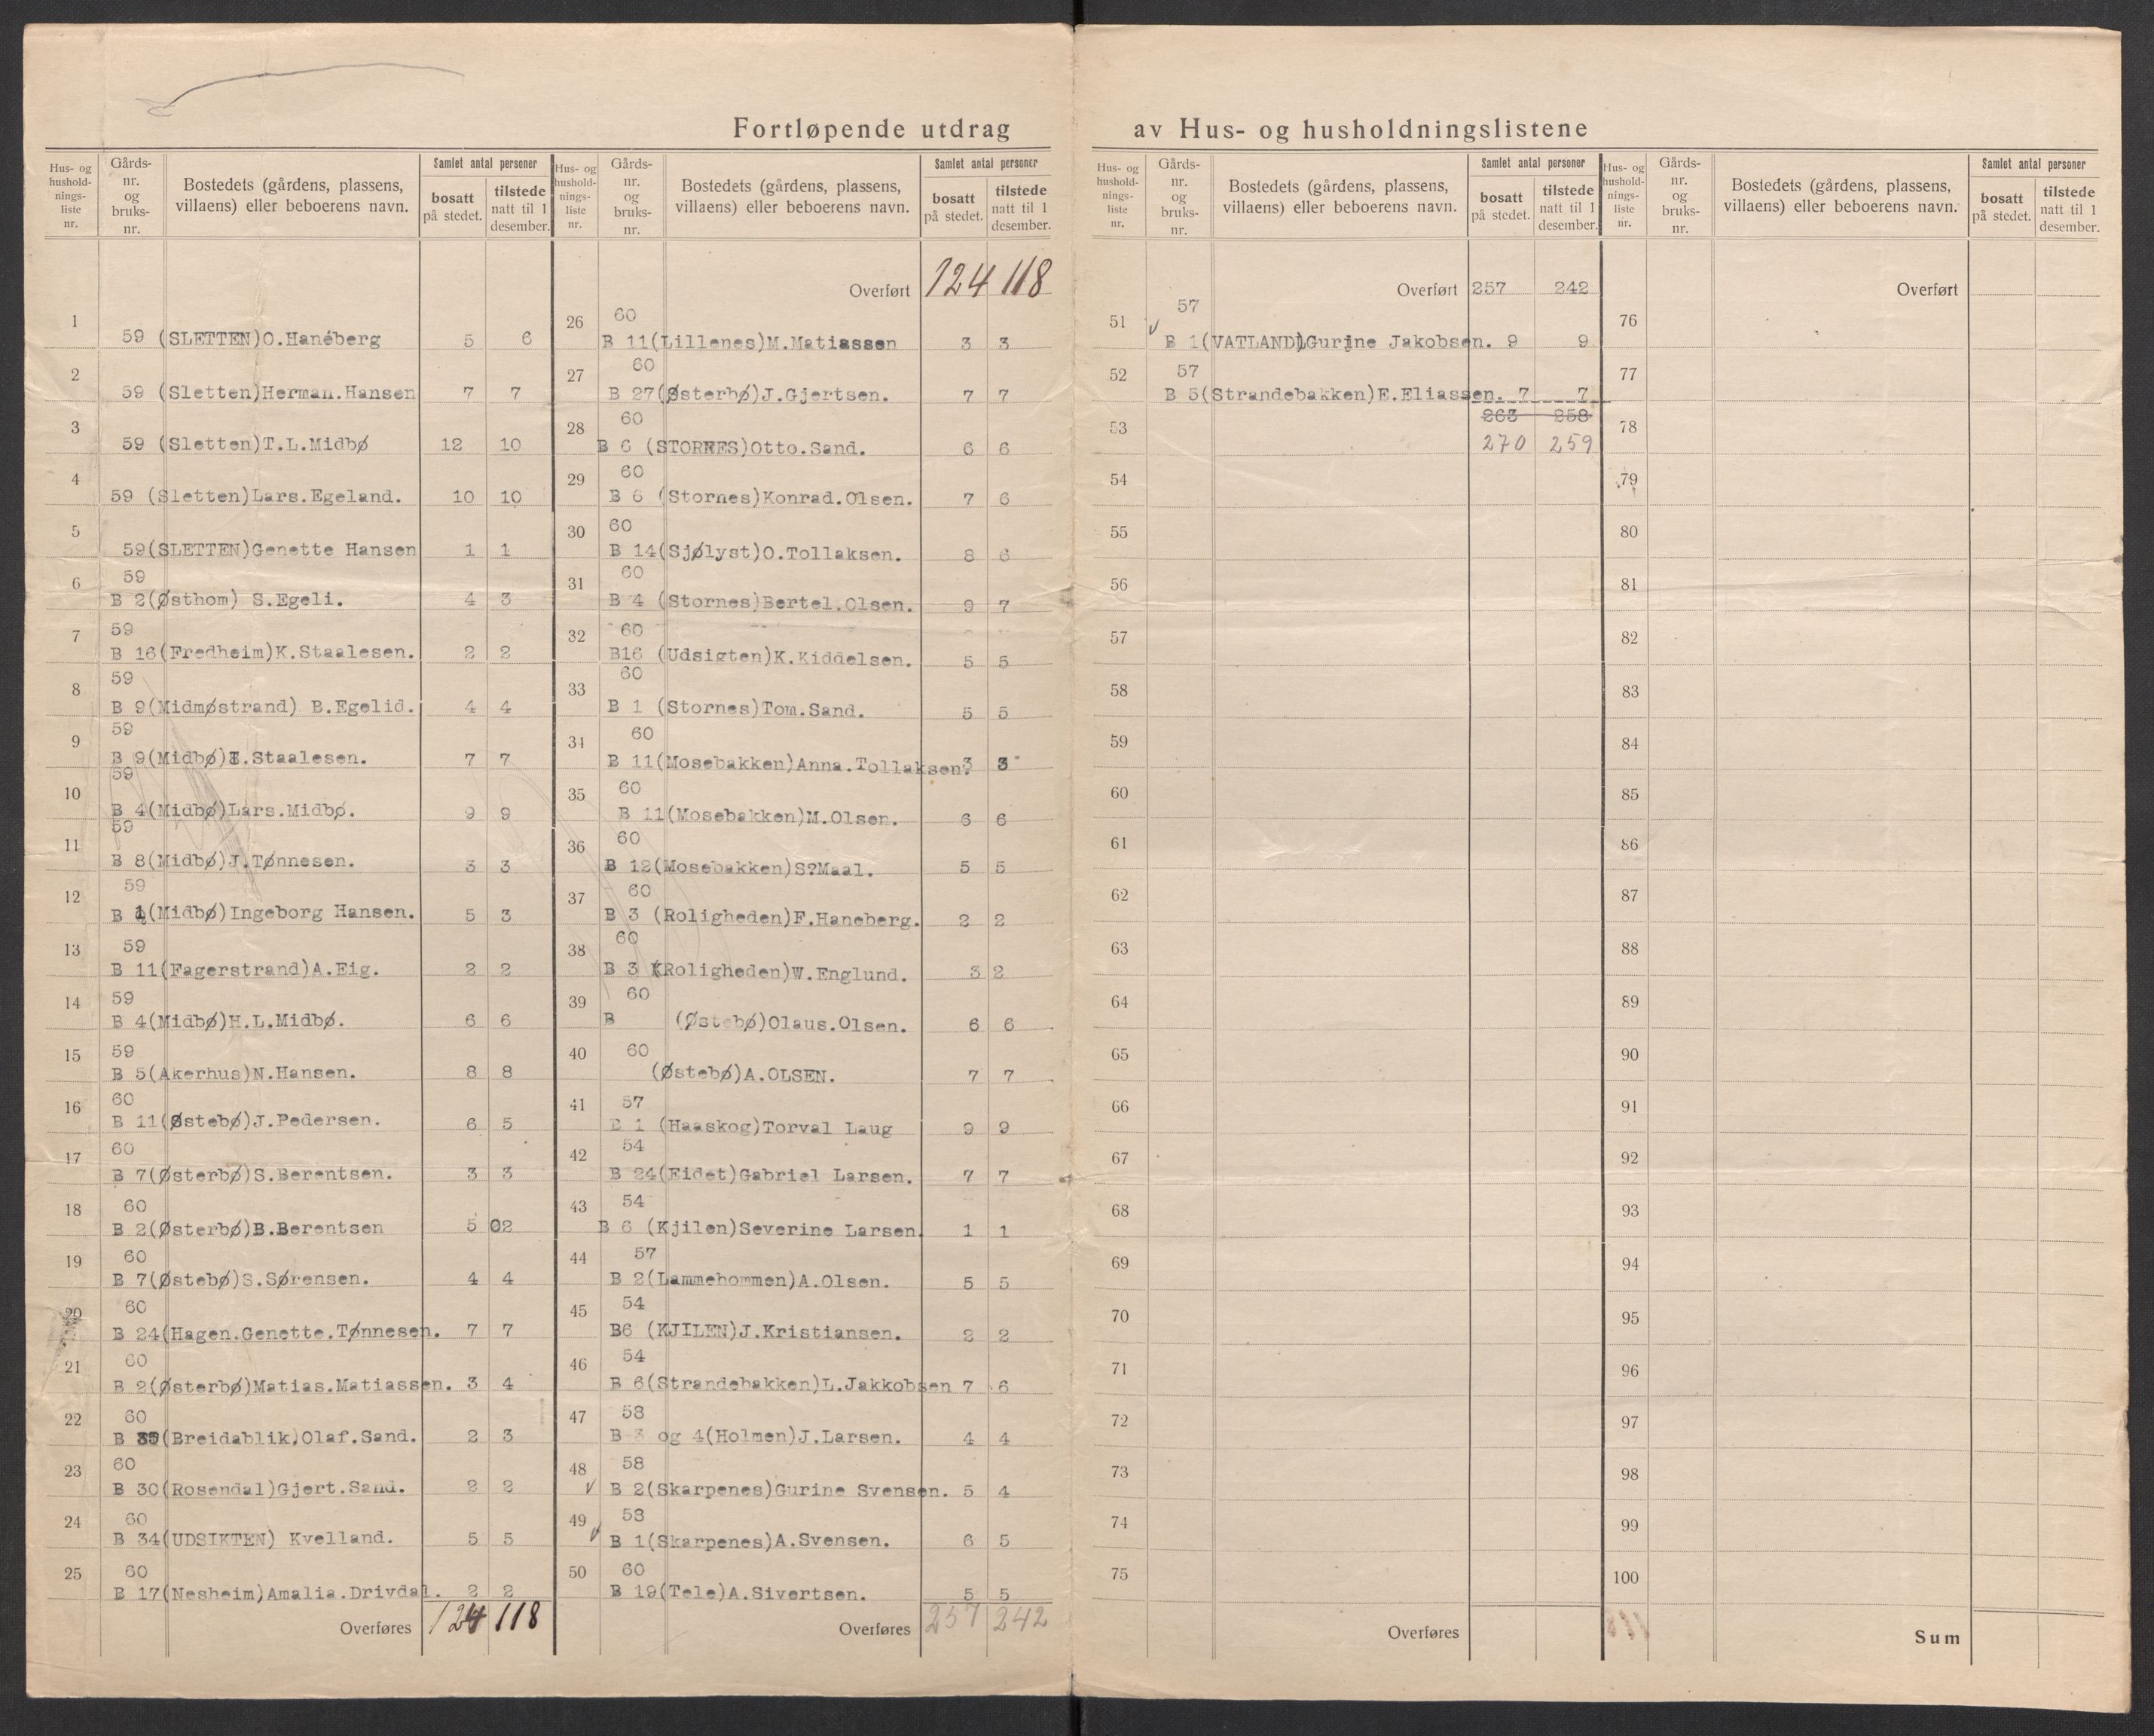 Fortløpende utdrag av Hus- og husholdningslistene
Hus- og hushold-nings-liste nr. Gårds-nr. og bruks-nr. Bostedets (gårdens, plassens, villaens) eller beboerens navn. Samlet antal personer bosatt på stedet. tilstede natt til 1 desember.
1 59 (SLETTEN)O.Hanéberg 5 6
2 59 (Sletten)Herman.Hansen 7 7
3 59 (Sletten)T.L.Midbø 12 10
4 59 (Sletten)Lars.Egeland. 10 10
5 59(SLETTEN)Genette Hansen 1 1
6 59
B 2(Østhom) S.Egeli. 4 3
7 59
B 16(Fredheim)K.Staalesen. 2 2
8 59
B 9(Midmøstrand) B.Egelid. 4 4
9 59
B 9(Midbø)T.Staalesen. 7 7
10 59
B 4(Midbø)Lars.Midbø. 9 9
11 59
B 8(Midbø)J.Tønnesen. 3 3
12 59
B 1(Midbø)Ingeborg Hansen. 5 3
13 59
B 11(Fagerstrand)A.Eig. 2 2
14 59
B 4(Midbø)H.L.Midbø. 6 6
15 59
B 5(Akerhus)N.Hansen. 8 8
16 60
B 11(Østebø)J.Pedersen. 6 5
17 60
B 7(Østerbø)S.Berentsen. 3 3
18 60
B 2(Østerbø)B.Berentsen 5 02
19 60
B 7(Østebø)S.Sørensen. 4 4
20 60
B 24(Hagen.Genette.Tønnesen. 7 7
21 60
B 2(Østerbø)Matias.Matiassen. 3 4
22 60
B 35(Breidablik)Olaf.Sand. 2 3
23 60
B 30(Rosendal)Gjert.Sand. 2 2
24 60
B 34(UDSIKTEN) Kvelland. 5 5
25 60
B 17(Nesheim)Amalia.Drivdal. 2 2
Overføres 124 118
Hus- og hushold-nings-liste nr. Gårds-nr. og bruks-nr. Bostedets (gårdens, plassens, villaens) eller beboerens navn. Samlet antal personer bosatt på stedet. tilstede natt til 1 desember.
Overført 124 118
26 60
B 11(Lillenes)M.Matiassen 3 3
27 60
B 27(Østerbø)J.Gjertsen. 7 7
28 60
B 6 (STORNES)Otto.Sand. 6 6
29 60
B 6 (Stornes)Konrad.Olsen. 7 6
30 60
B 14(Sjølyst)O.Tollaksen. 8 6
31 60
B 4 (Stornes)Bertel.Olsen. 9 7
32 60
B16 (Udsigten)K.Kiddelsen. 5 5
33 60
B 1 (Stornes)Tom.Sand. 5 5
34 60
B 11(Mosebakken)Anna.Tollaksen? 3 3
35 60
B 11(Mosebakken)M.Olsen. 6 6
36 60
B 12(Mosebakken)S?Maal. 5 5
37 60
B 3 (Roligheden)F.Haneberg. 2 2
38 60
B 3 (Roligheden)W.Englund. 3 2
39 60
B (Østebø)Olaus.Olsen. 6 6
40 60
(Østebø)A.OLSEN. 7 7
41 57
B 1 (Haaskog)Torval Laug 9 9
42 54
B 24(Eidet)Gabriel Larsen. 7 7
43 54
B 6 (Kjilen)Severine Larsen. 1 1
44 57
B 2(Lammehommen)A.Olsen. 5 5
45 54
B6 (KJILEN)J.Kristiansen. 2 2
46 54
B 6(Strandebakken)L.Jakkobsen 7 6
47 58
B 3 og 4(Holmen)J.Larsen. 4 4
48 58
B 2(Skarpenes)Gurine Svensen. 5 4
49 58
B 1(Skarpenes)A.Svensen. 6 5
50 60
B 19(Tele)A.Sivertsen. 5 5
Overføres 257 242
Hus- og hushold-nings-liste nr. Gårds-nr. og bruks-nr. Bostedets (gårdens, plassens, villaens) eller beboerens navn. Samlet antal personer bosatt på stedet. tilstede natt til 1 desember.
Overført 257 242
51 57
B 1(VATLAND)Gurine Jakobsen. 9 9
52 57
B 5(Strandebakken)E.Eliassen. 7 7
263 258
53 270 259
54
55
56
57
58
59
60
61
62
63
64
65
66
67
68
69
70
71
72
73
74
75
Overføres
Hus- og hushold-nings-liste nr. Gårds-nr. og bruks-nr. Bostedets (gårdens, plassens, villaens) eller beboerens navn. Samlet antal personer bosatt på stedet. tilstede natt til 1 desember.
Overført
76
77
78
79
80
81
82
83
84
85
86
87
88
89
90
91
92
93
94
95
96
97
98
99
100
Sum